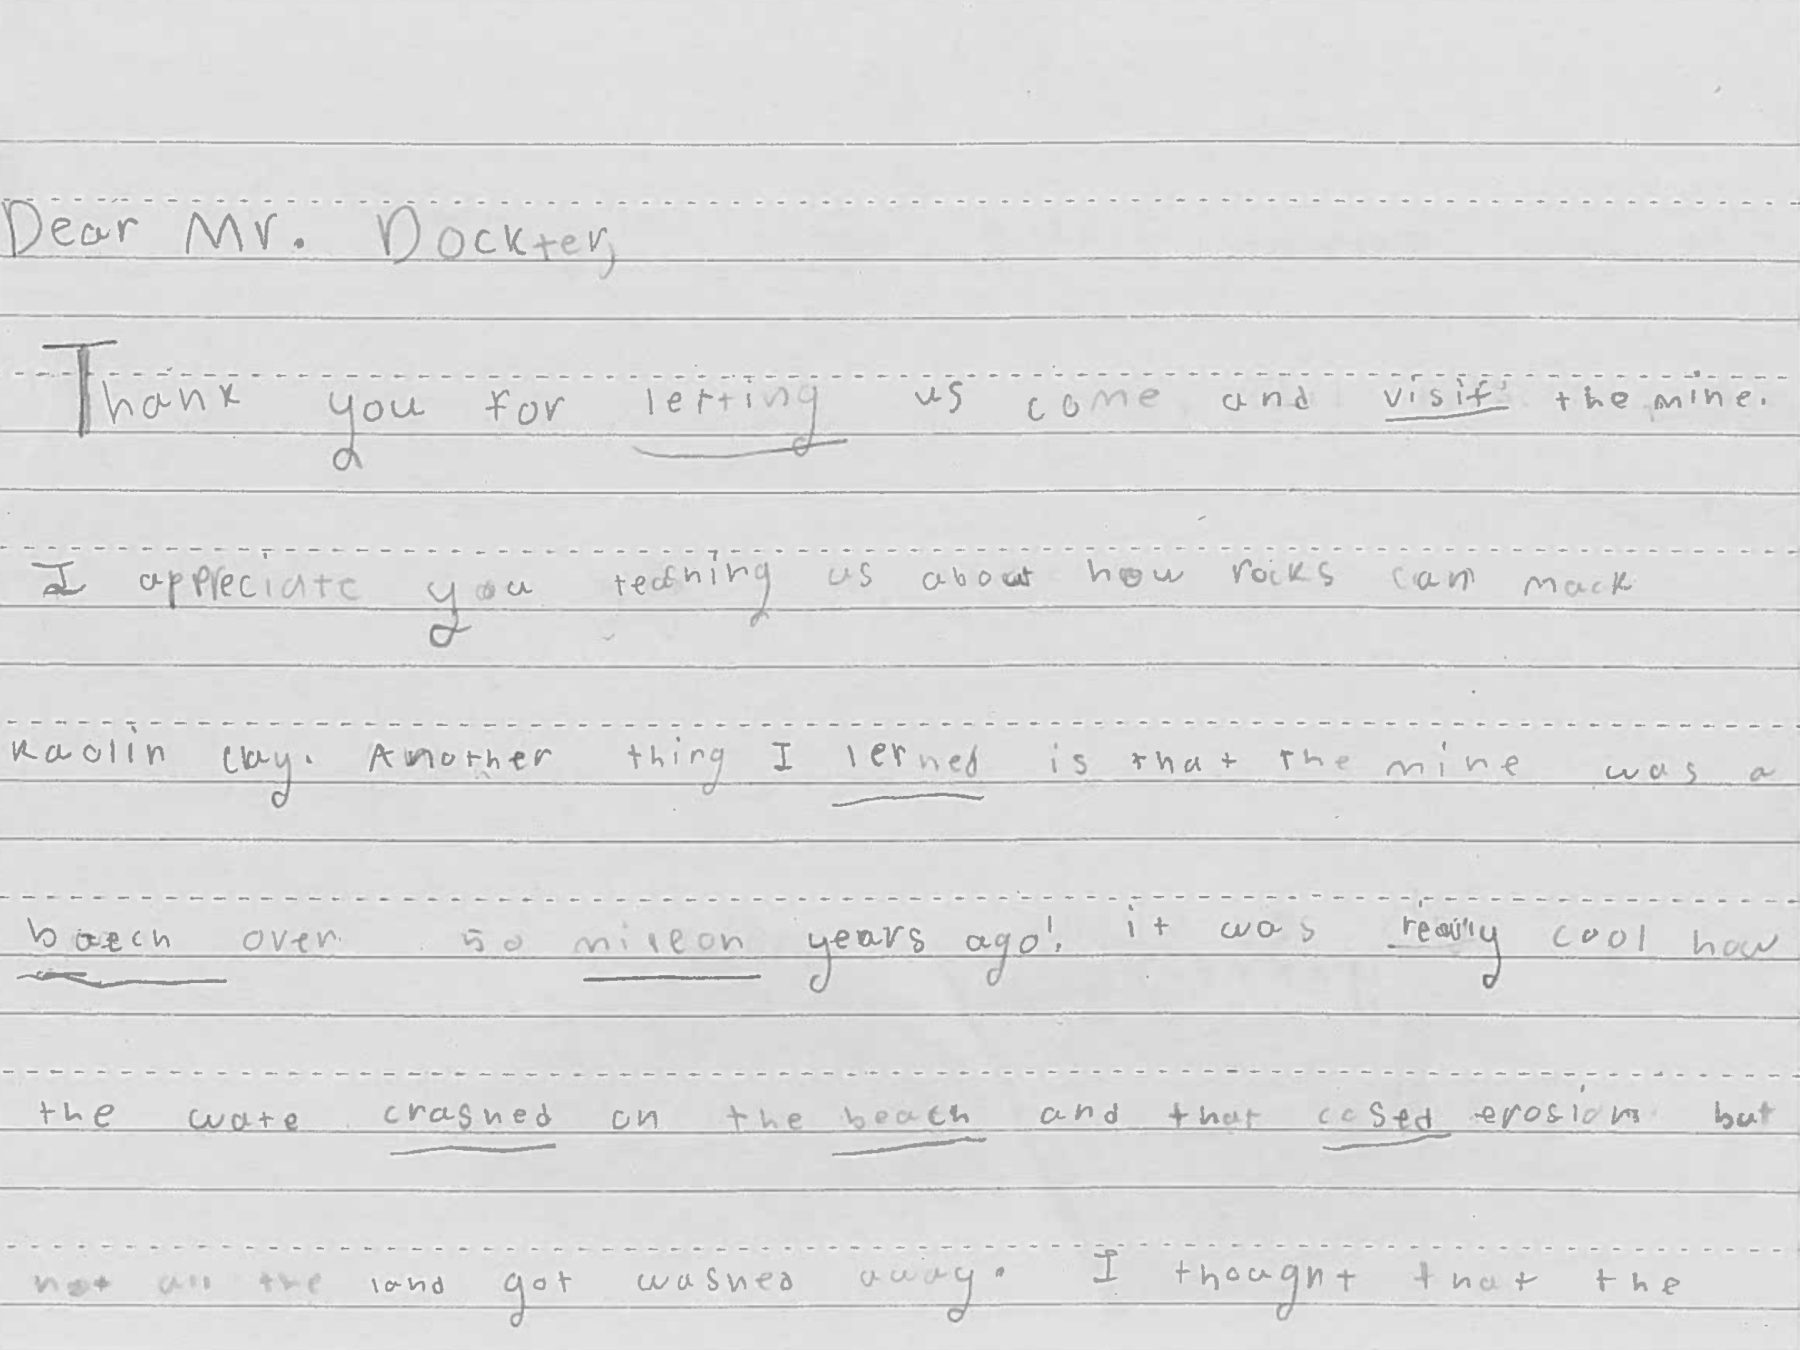 Dear Mr. Dockter,
Thank you for letting us come and visit the mine.
I appreciate you teaching us about how rocks can mack
kaolin clay. Another thing I lerned is that the mine was a
baech over 50 mileon years ago! it was really cool how
the wate crashed on the beach and that cased erosion but
not all the land got washed away. I thought that the